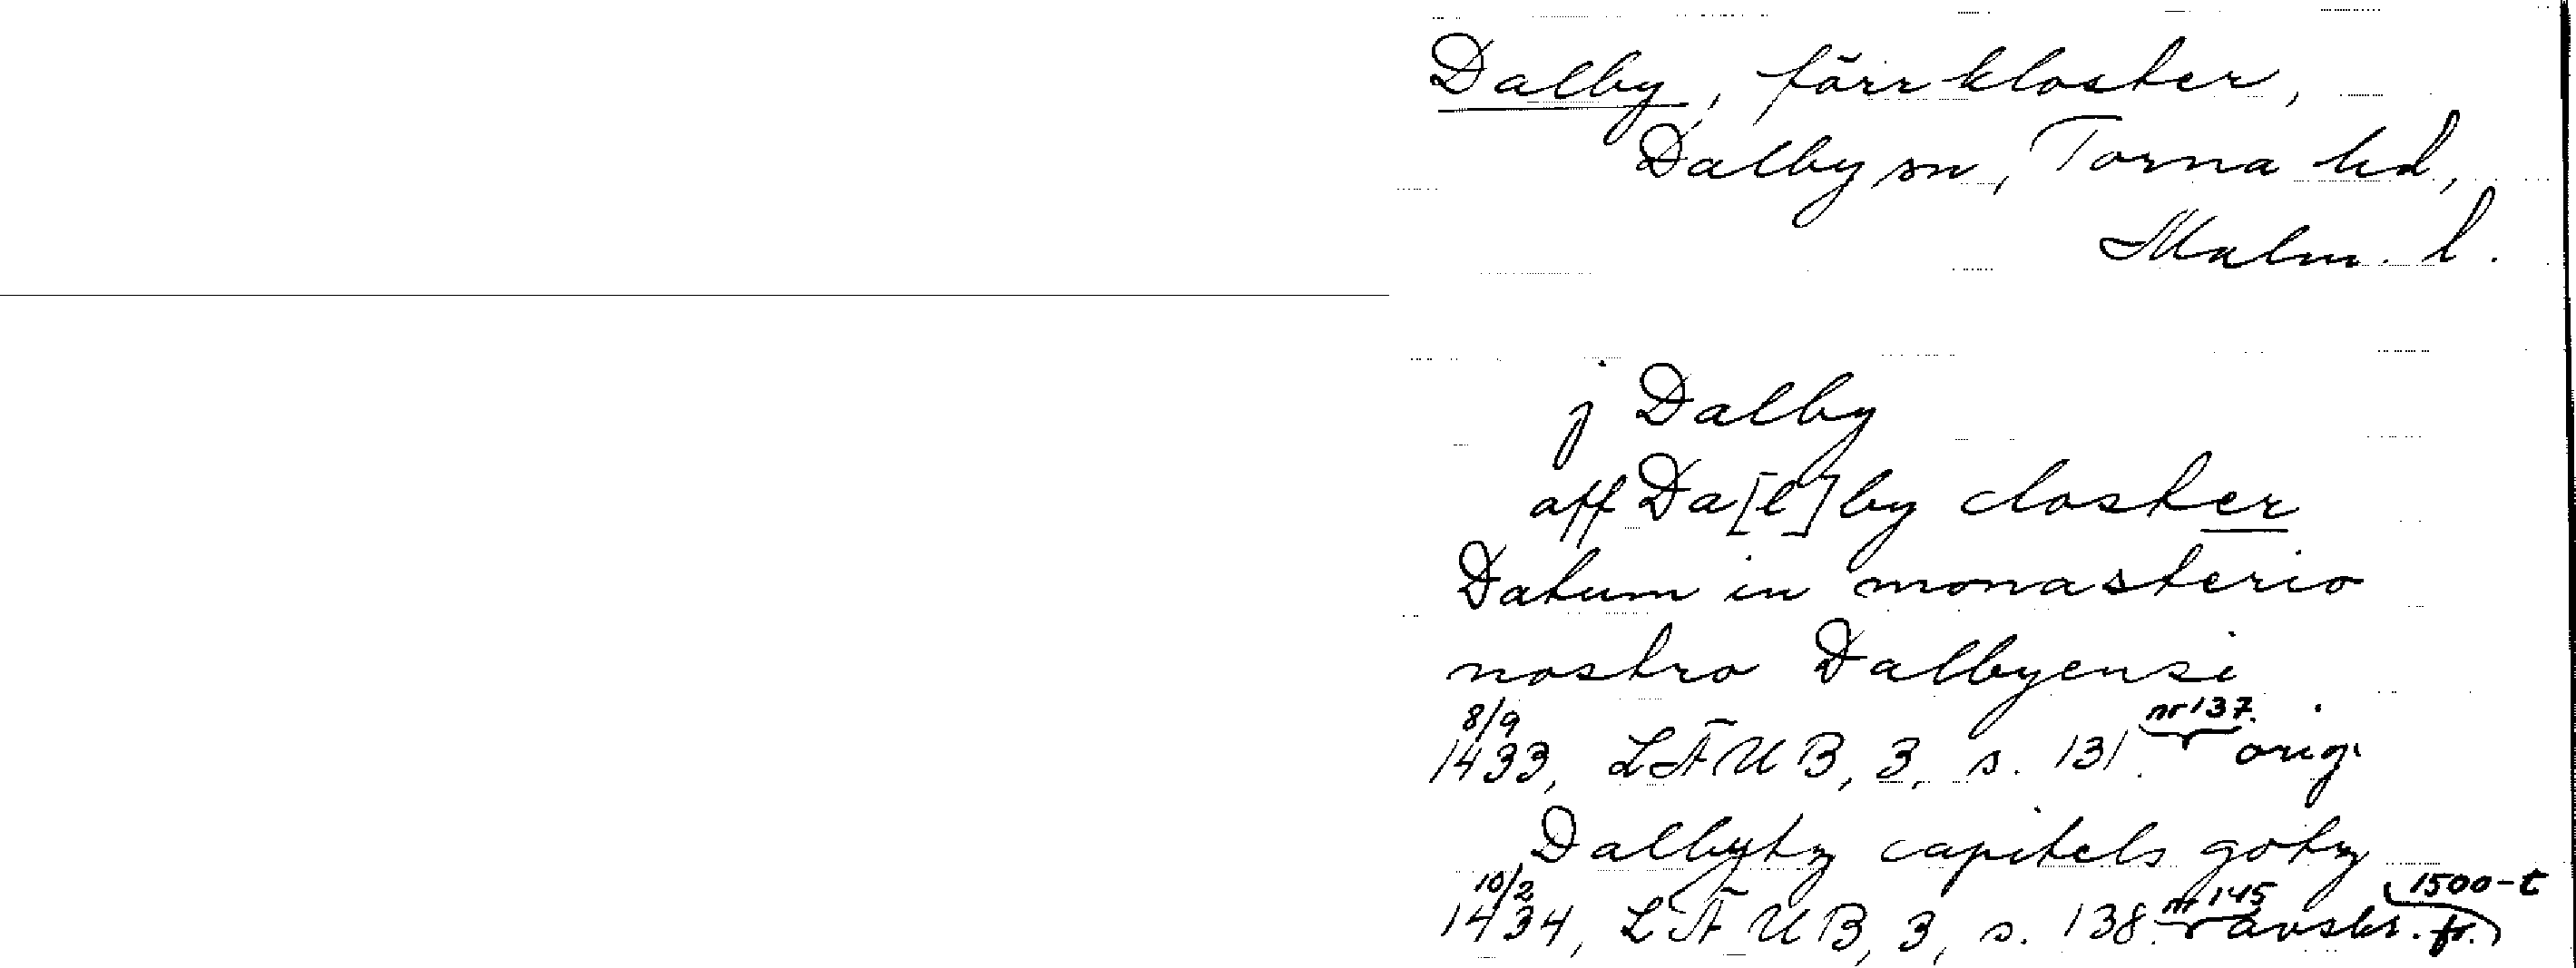 Dalby, förr kloster,
Dalby sn, Torna hd,
Malm. l.
j Dalby
aff Da[l]by closter
Datum in monasterio
nostro Dalbyensi
8/9 1433, LÄUB, 3, s. 131. nr 137. orig.
Dalbytz capitels gotz
10/2 1434, LÄUB, 3, s. 138. nr 145 avskr. fr. 1500-t